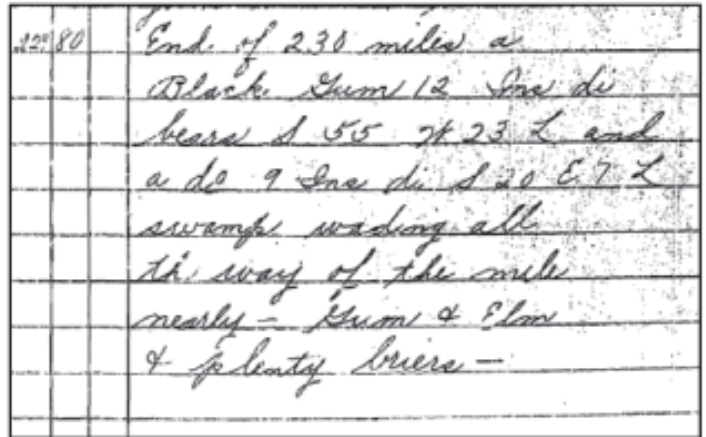 80 End. of 230 miles a
Black Gum 12 Ins di
bears S 55 W 23 L and
a do 9 Ins di S 20 E 7 L
swamp wading all
th way of the mile
nearly - Gum & Elm
& plenty briers -